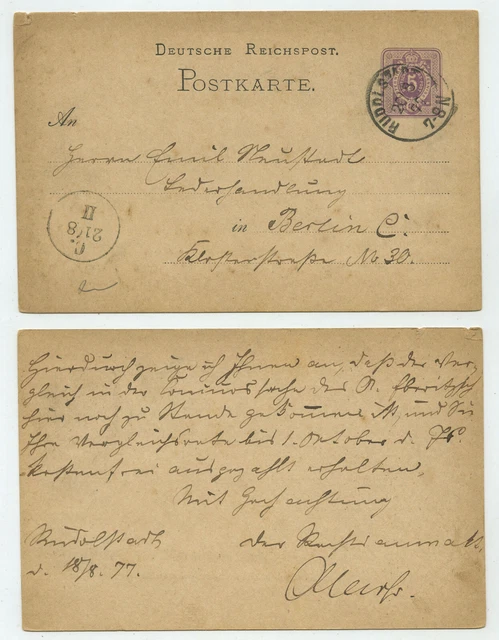 DEUTSCHE REICHSPOST.
POSTKARTE.
5
RUDOLSTADT
7-8N
C.
21/8
II
An
Herrn Emil Neustadt
Lederhandlung
in Berlin C.
Klosterstraße No 30.
Hierdurch zeige ich Ihnen an, daß der Ver-
gleich in der Concurssache des
hier noch zu Stande gekommen ist, und Sie
Ihre Vergleichsrate bis 1. Oktober d. Js
kostenfrei ausgezahlt erhalten.
Mit Hochachtung
Rudolstadt der Rechtsanwalt
d. 18/8. 77.